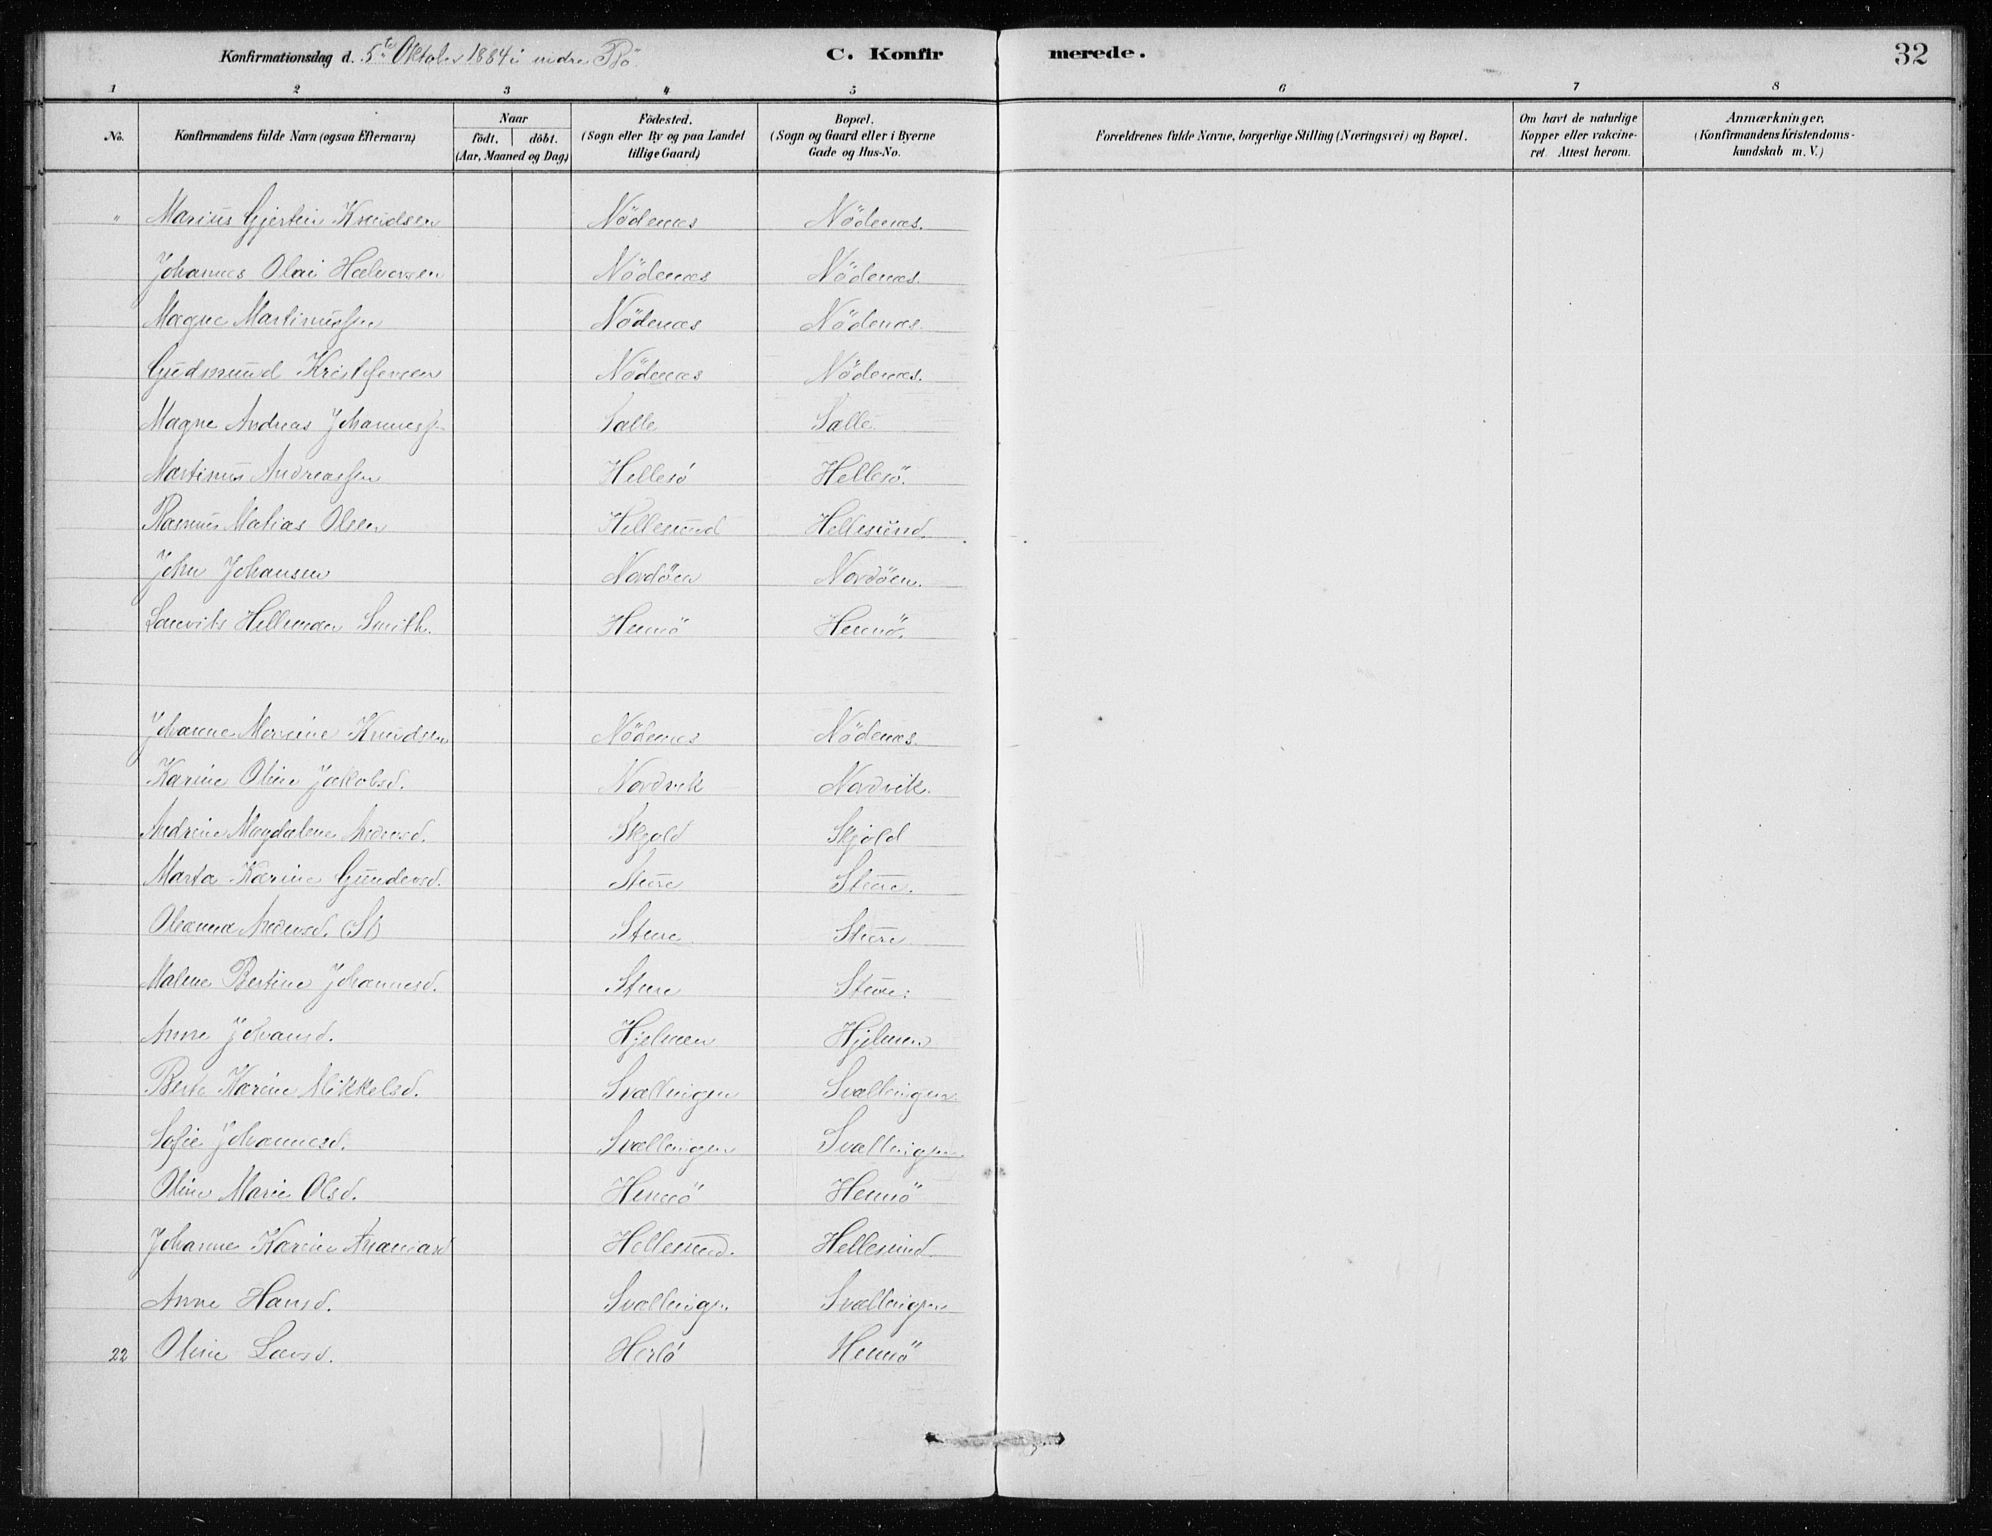 Konfirmationsdag d. 5te Oktober 1884 i indre Bö.
C. Konfirmerede.
32
1 2 3 4 5 6 7 8
No.
Konfirmandens fulde Navn (ogsaa Efternavn)
Naar
födt, döbt.
(Aar, Maaned og Dag)
Födested.
(Sogn eller By og paa Landet
tillige Gaard)
Bopæl.
(Sogn og Gaard eller i Byerne
Gade og Hus-No.
Forældrenes fulde Navne, borgerlige Stilling (Næringsvei) og Bopæl.
Om havt de naturlige
Kopper eller vakcine-
ret. Attest herom.
Anmærkninger.
(Konfirmandens Kristendoms-
kundskab m. V.)
" Marius Gjertin Knudsen Nödenæs Nödenæs.
Johannes Olai Halvorsen Nödenæs Nödenæs.
Magne Martinussen Nödenæs Nödenæs.
Gudmund Kristofersen Nödenæs Nödenæs.
Magne Andreas Johanness. Salle Salle
Martinus Andreassen Hellesö Hellesö.
Rasmus Matias Olsen Hellesund Hellesund.
John Johansen Nordöen Nordöen.
Lauvits Hellman Smith. Hennö Hennö.
Johanne Knudsen Nödenæs Nödenæs.
Karine Oline Jakobsd. Nordvik Nordvik.
Andrine Magdalene Andersd. Skjold Skjold
Marta Karine Gundersd. Sture Sture.
Oleanna Andersd. (St) Sture Sture
Malene Bertine Johannesd. Sture Sture.
Anne Johansd. Hjelmen Hjelmen
Berta Karine Mikkelsd. Svællingen Svællingen
Sofie Johannesd. Svællingen Svællingen
Oline Marie Olsd. Hennö Hennö
Johanne Karine Ananiasd Hellesund. Hellesund.
Anne Hansd. Svællingen Svællingen
22 Oline Larsd. Herlö Hennö